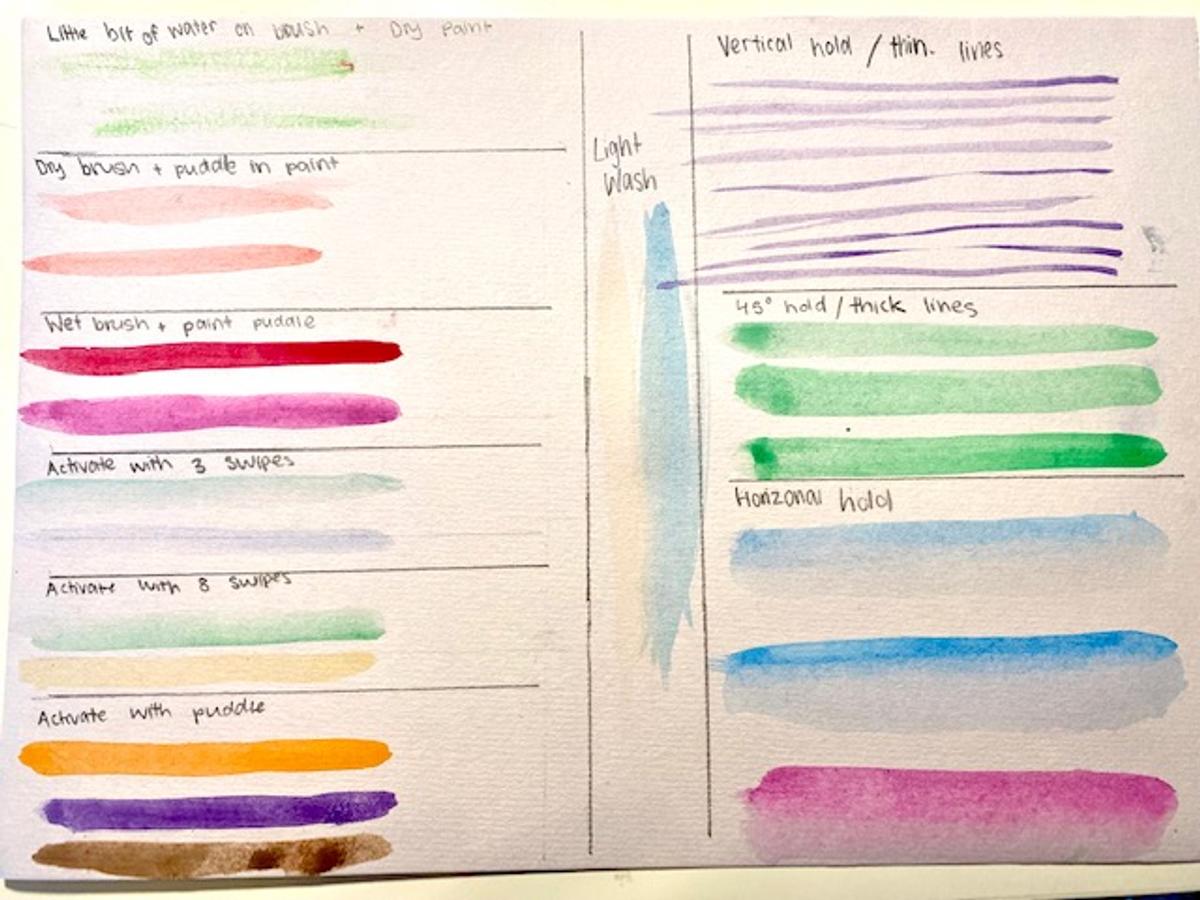 Little bit of water on brush + Dry paint
Dry brush + puddle in paint
Wet brush + paint puddle
Activate with 3 swipes
Activate with 8 swipes
Activate with puddle
Light
Wash
Vertical hold / thin. lines
45° hold / thick lines
Horizonal hold